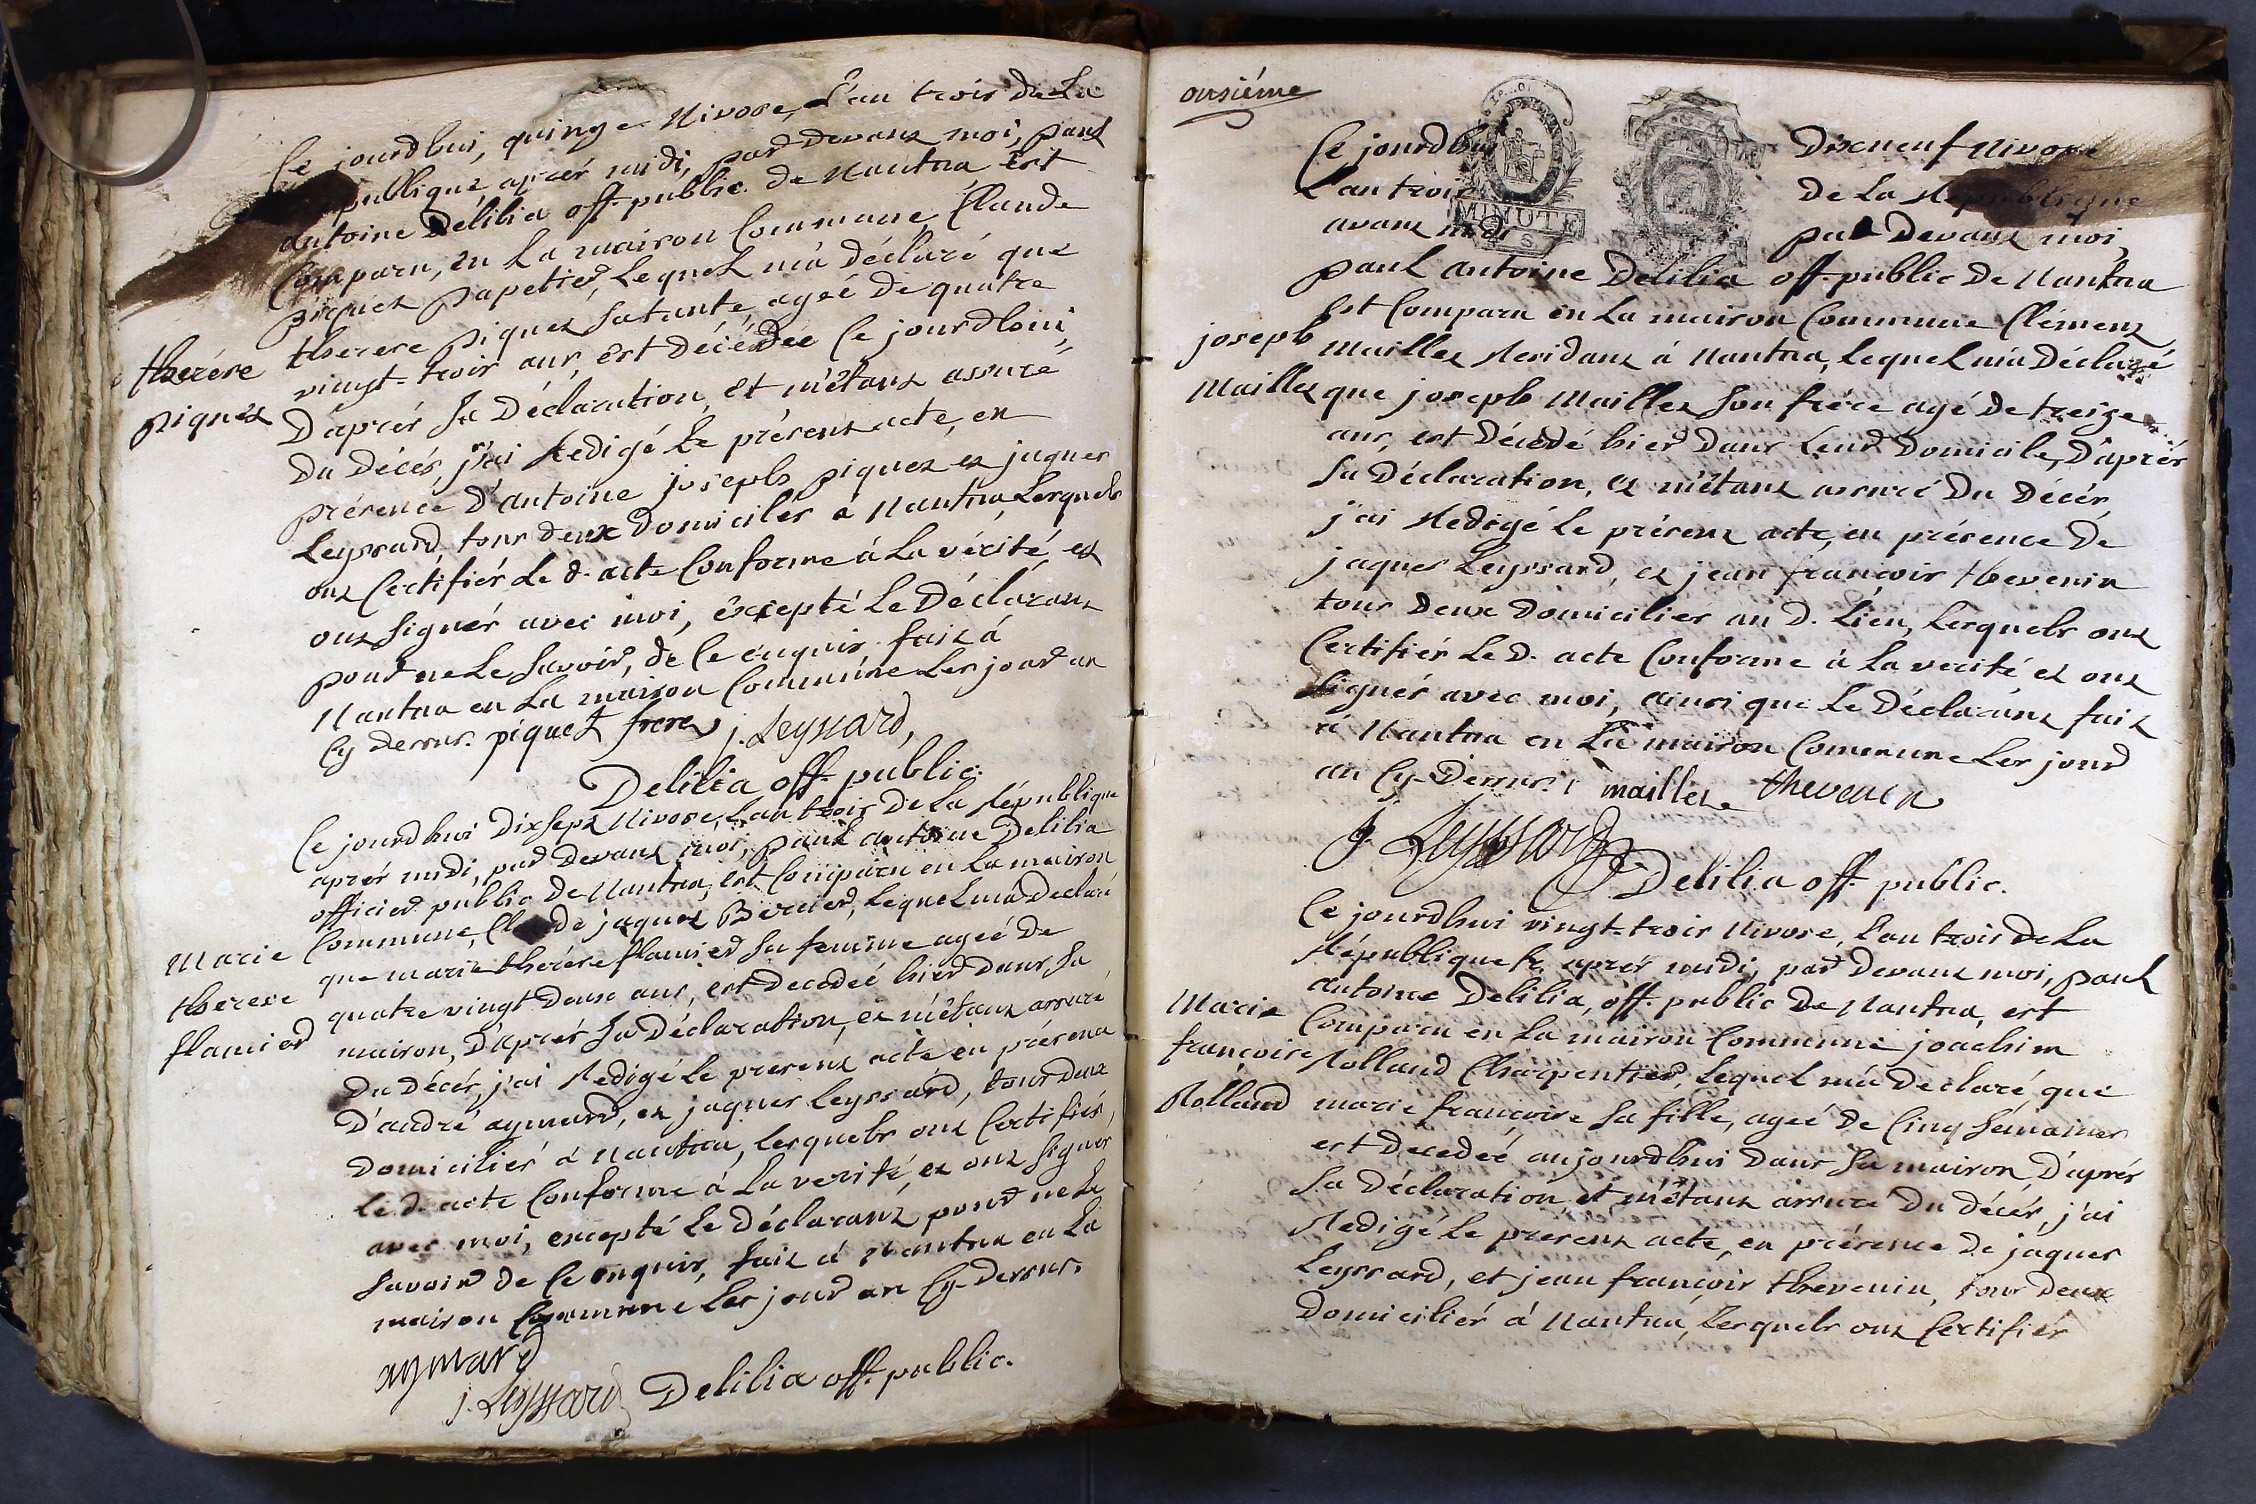 Ce jourdhui, quinze Nivose, L'an trois de La
publique, aprés midi, par devant moi, paul
antoine Delilia off. public de Nantua est
Comparu, en La maison Commune, Claude
piquet papetier, Lequel m'a déclaré que
therese piquet sa tante, ageé de quatre
vingt-trois ans, est décédée Ce jourdhui,
D'aprés Sa Déclaration, et m'étant assuré
Du Décés, j'ai Redigé Le présent acte, en
présence d'antoine joseph piquet et jaques
Leyssard, tous deux Domiciliés a Nantua, Lesquels
ont Certifiés Le d. acte Conforme à La vérité, et
ont Signés avec moi, éxcepté Le Déclarant
pour ne Le Savoir, de Ce enquis. fait à
Nantua en La maison Commune Les jour an
Cy dessus. piquet frere j. Leyssard,
Delilia off. public.
therése
piquet
Ce jourdhui Dix sept Nivose, L'an trois de La République
aprés midi, par devant moi, paul antoine Delilia
officier public de Nantua, est Comparu en La maison
Commune, Claude jaques Bernier, Lequel m'a Declaré
que marie therése flamier Sa femme ageé de
quatre vingt douse ans, est Decedeé hier Dans Sa
maison, D'aprés Sa Déclaration, et m'étant assuré
Du Décés, j'ai Redigé Le present acte en présence
D'andré aymard, et jaques Leyssard, tous deux
Domiciliés à Nantua, Lesquels ont Certifiés
Le d. acte Conforme à La verité, et ont Signés
avec moi, excepté Le Déclarant pour ne Le
Savoir de Ce enquis, fait à Nantua en La
maison Commune Les jour an Cy-Dessus.
aymard
j. Leyssard Delilia off. public.
Marie
therese
flamier
onsiéme
Ce jourdhui Dixneuf Nivose
L'an trois de La République
avant midi par Devant moi,
MINUTE
paul antoine Delilia off. public de Nantua
est Comparu en La maison Commune Clément
Maillet Residant à Nantua, Lequel m'a Déclaré
que joseph Maillet Son frére agé de treize
ans, est Décédé hier Dans Leur Domicile, D'aprés
Sa Déclaration, et m'étant assuré Du Décés,
j'ai Redigé Le présent acte, en présence de
jaques Leyssard, et jean françois thevenin
tous Deux Domicilies au D. Lieu, Lesquels ont
Certifiés Le D. acte Conforme à La verité et ont
Signés avec moi, ainsi que Le Déclarant fait
à Nantua en La maison Commune Les jour
an Cy-Dessus. maillet thevenin
J. Leyssard Delilia off. public.
joseph
Maillet
Ce jourdhui vingt-trois Nivose, L'an trois de La
République fr. aprés midi, par Devant moi, paul
antoine Delilia, off. public de Nantua, est
Comparu en La maison Commune joachim
Rolland Charpentier, Lequel m'a Declaré que
marie françoise Sa fille, ageé de Cinq Semaines
est Decedeé aujourdhui Dans Sa maison D'aprés
Sa Déclaration, et m'étant assuré Du Décés, j'ai
Redigé Le present acte, en présence de jaques
Leyssard, et jean françois thevenin, tous Deux
Domiciliés à Nantua, Lesquels ont Certifiés
Marie
françoise
Rolland